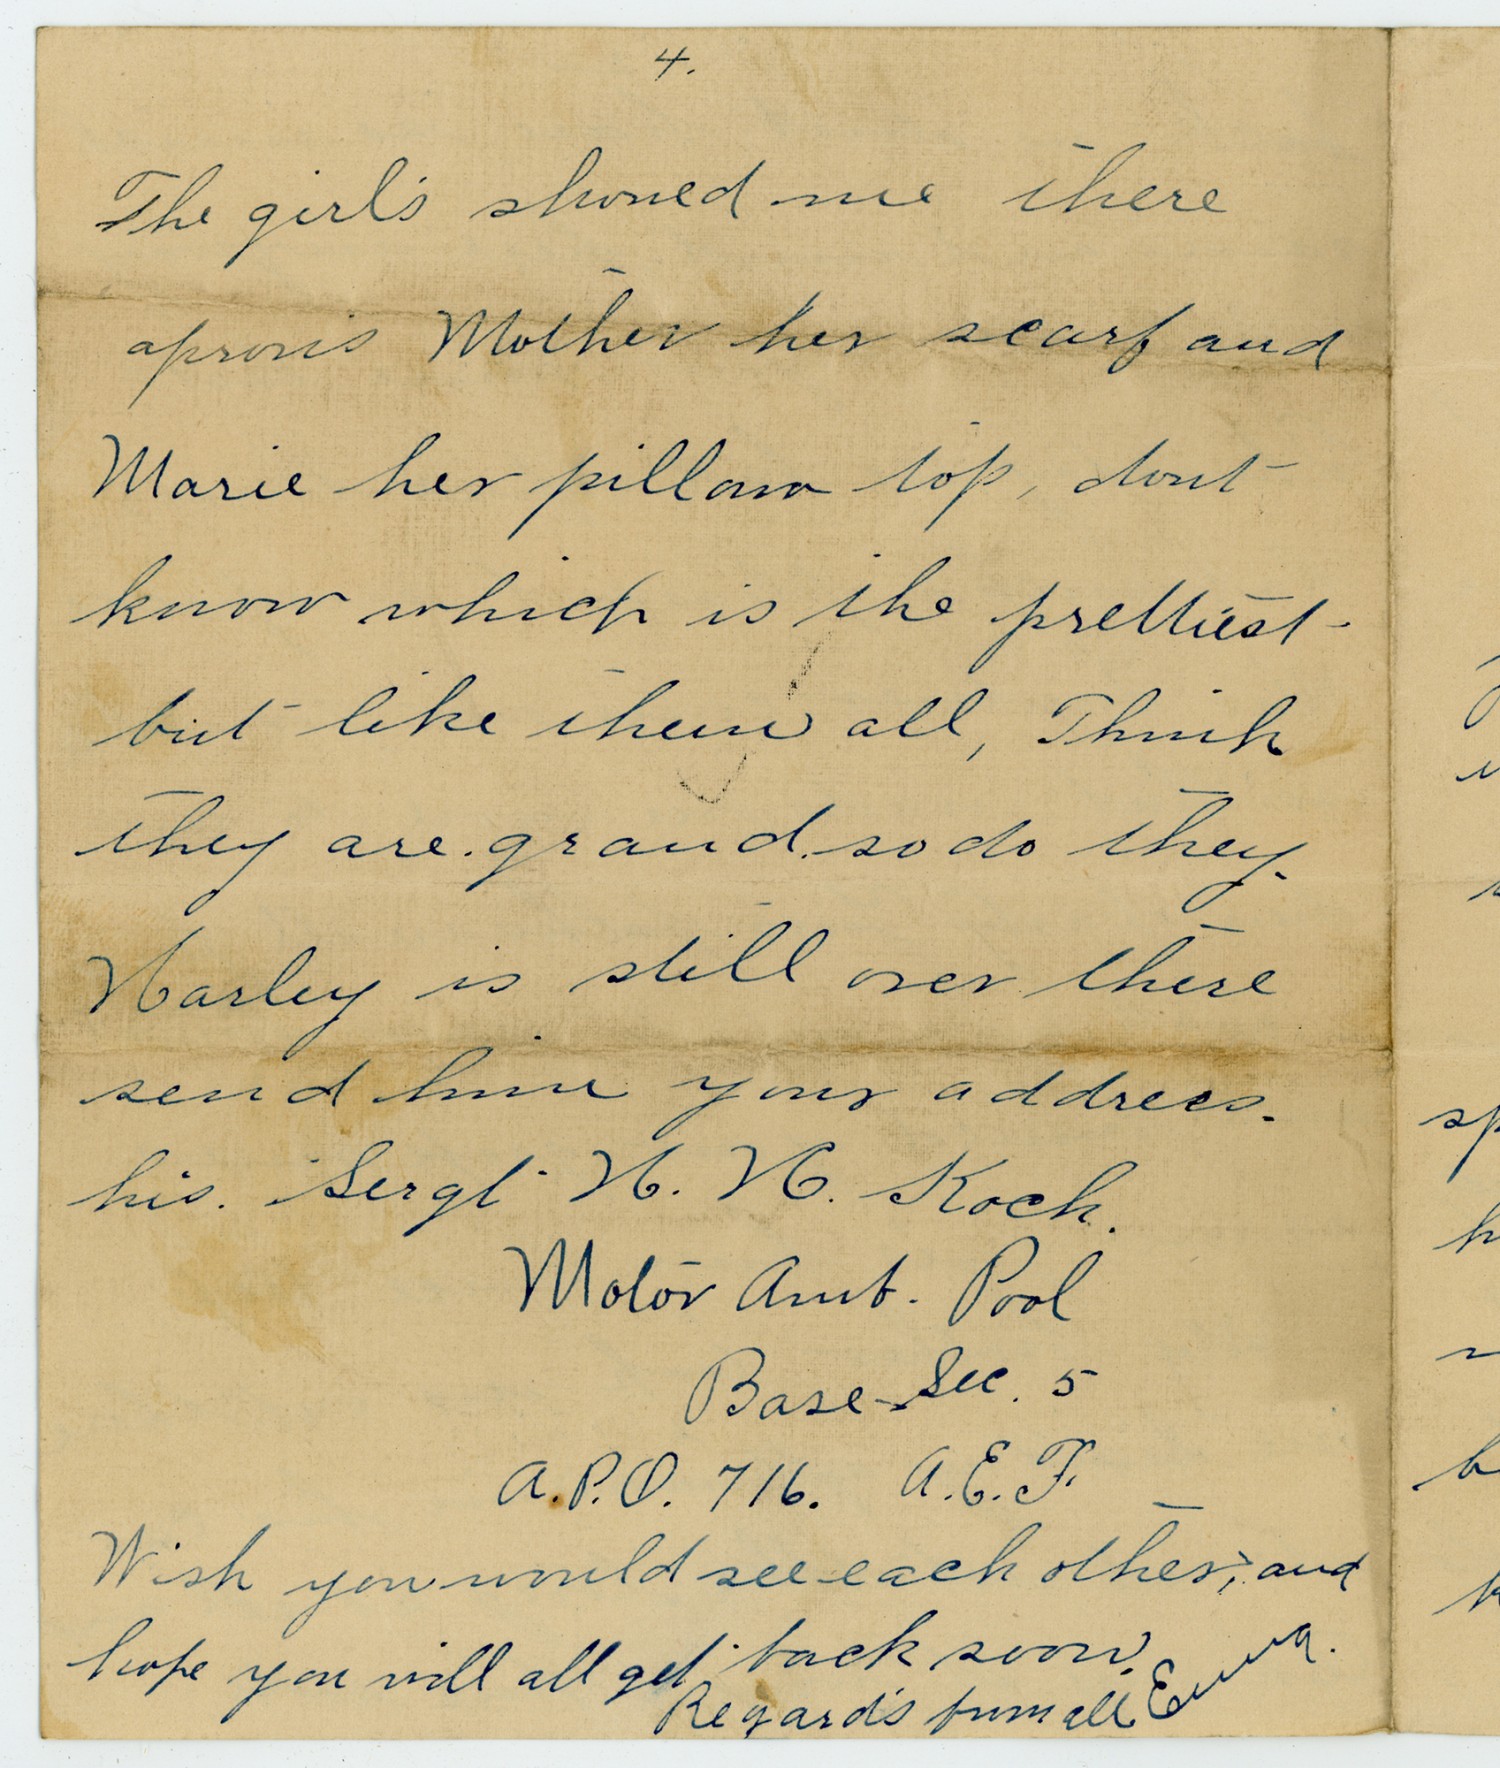 4.
The girl's showed me there
apron's Mother her scarf and
Marie her pillow top, dont
know which is the prettiest
but like them all, Think
they are grand so do they.
Harley is still over there
send him your address.
his. Sergt H. H. Koch.
Motor Amb. Pool
Base Sec. 5
A.P.O. 716. A.E.F.
Wish you would see each other, and
hope you will all get back soon.
Regard's from all Emma.